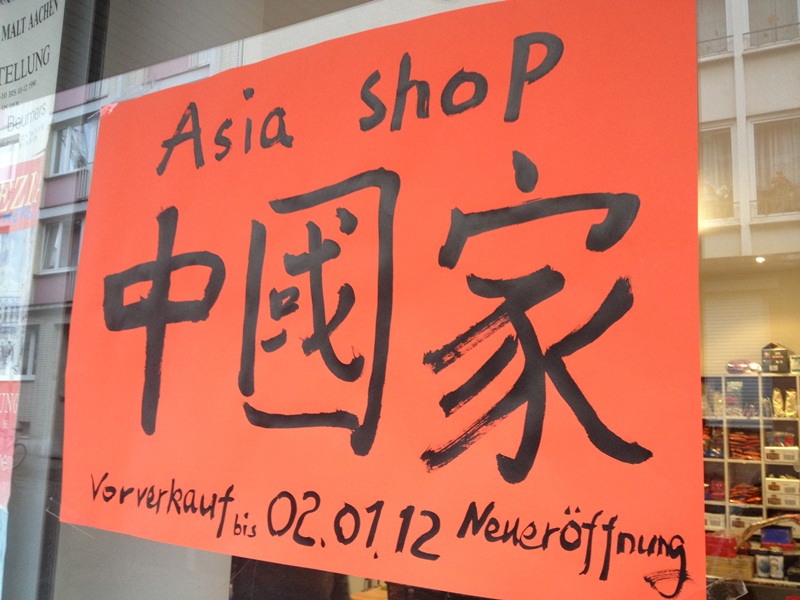 MALT AACHEN
TELLUNG
Beumers
EZI
Asia shop
中國家
Vorverkauf bis 02.01.12 Neueröffnung